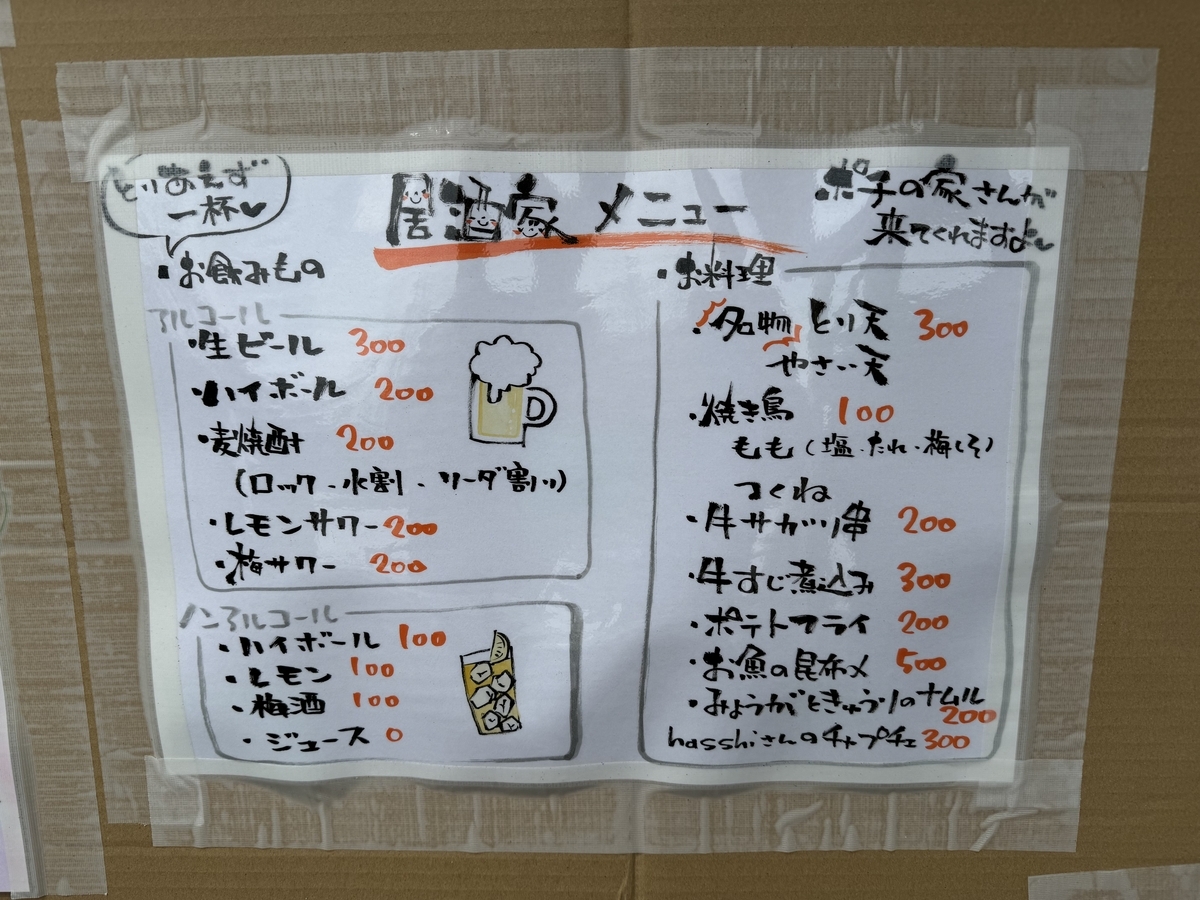 とりあえず
一杯♥
居酒家 メニュー
ポチの家さんが
来てくれますよ♥
・お飲みもの
アルコール
・生ビール 300
・ハイボール 200
・麦焼酎 200
(ロック・水割・ソーダ割り)
・レモンサワー 200
・梅サワー 200
ノンアルコール
・ハイボール 100
・レモン 100
・梅酒 100
・ジュース 0
・お料理
・名物 とり天 300
やさい天
・焼き鳥 100
もも(塩・たれ・梅しそ)
つくね
・牛サガリ串 200
・牛すじ煮込み 300
・ポテトフライ 200
・お魚の昆布〆 500
・みょうがときゅうりのナムル
200
hasshiさんのチャプチェ 300